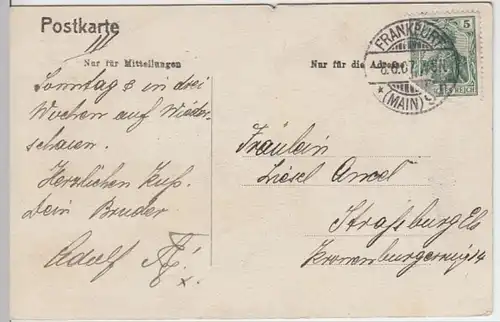 Postkarte
Nur für Mitteilungen
Sonntag in drei
Wochen auf Wieder-
schauen.
Herzlichen Kuß.
Dein Bruder
Adolf
Nur für die Adresse
FRANKFURT
(MAIN)
5
REICH
Fräulein
Liesel Amel
Straßburg Els